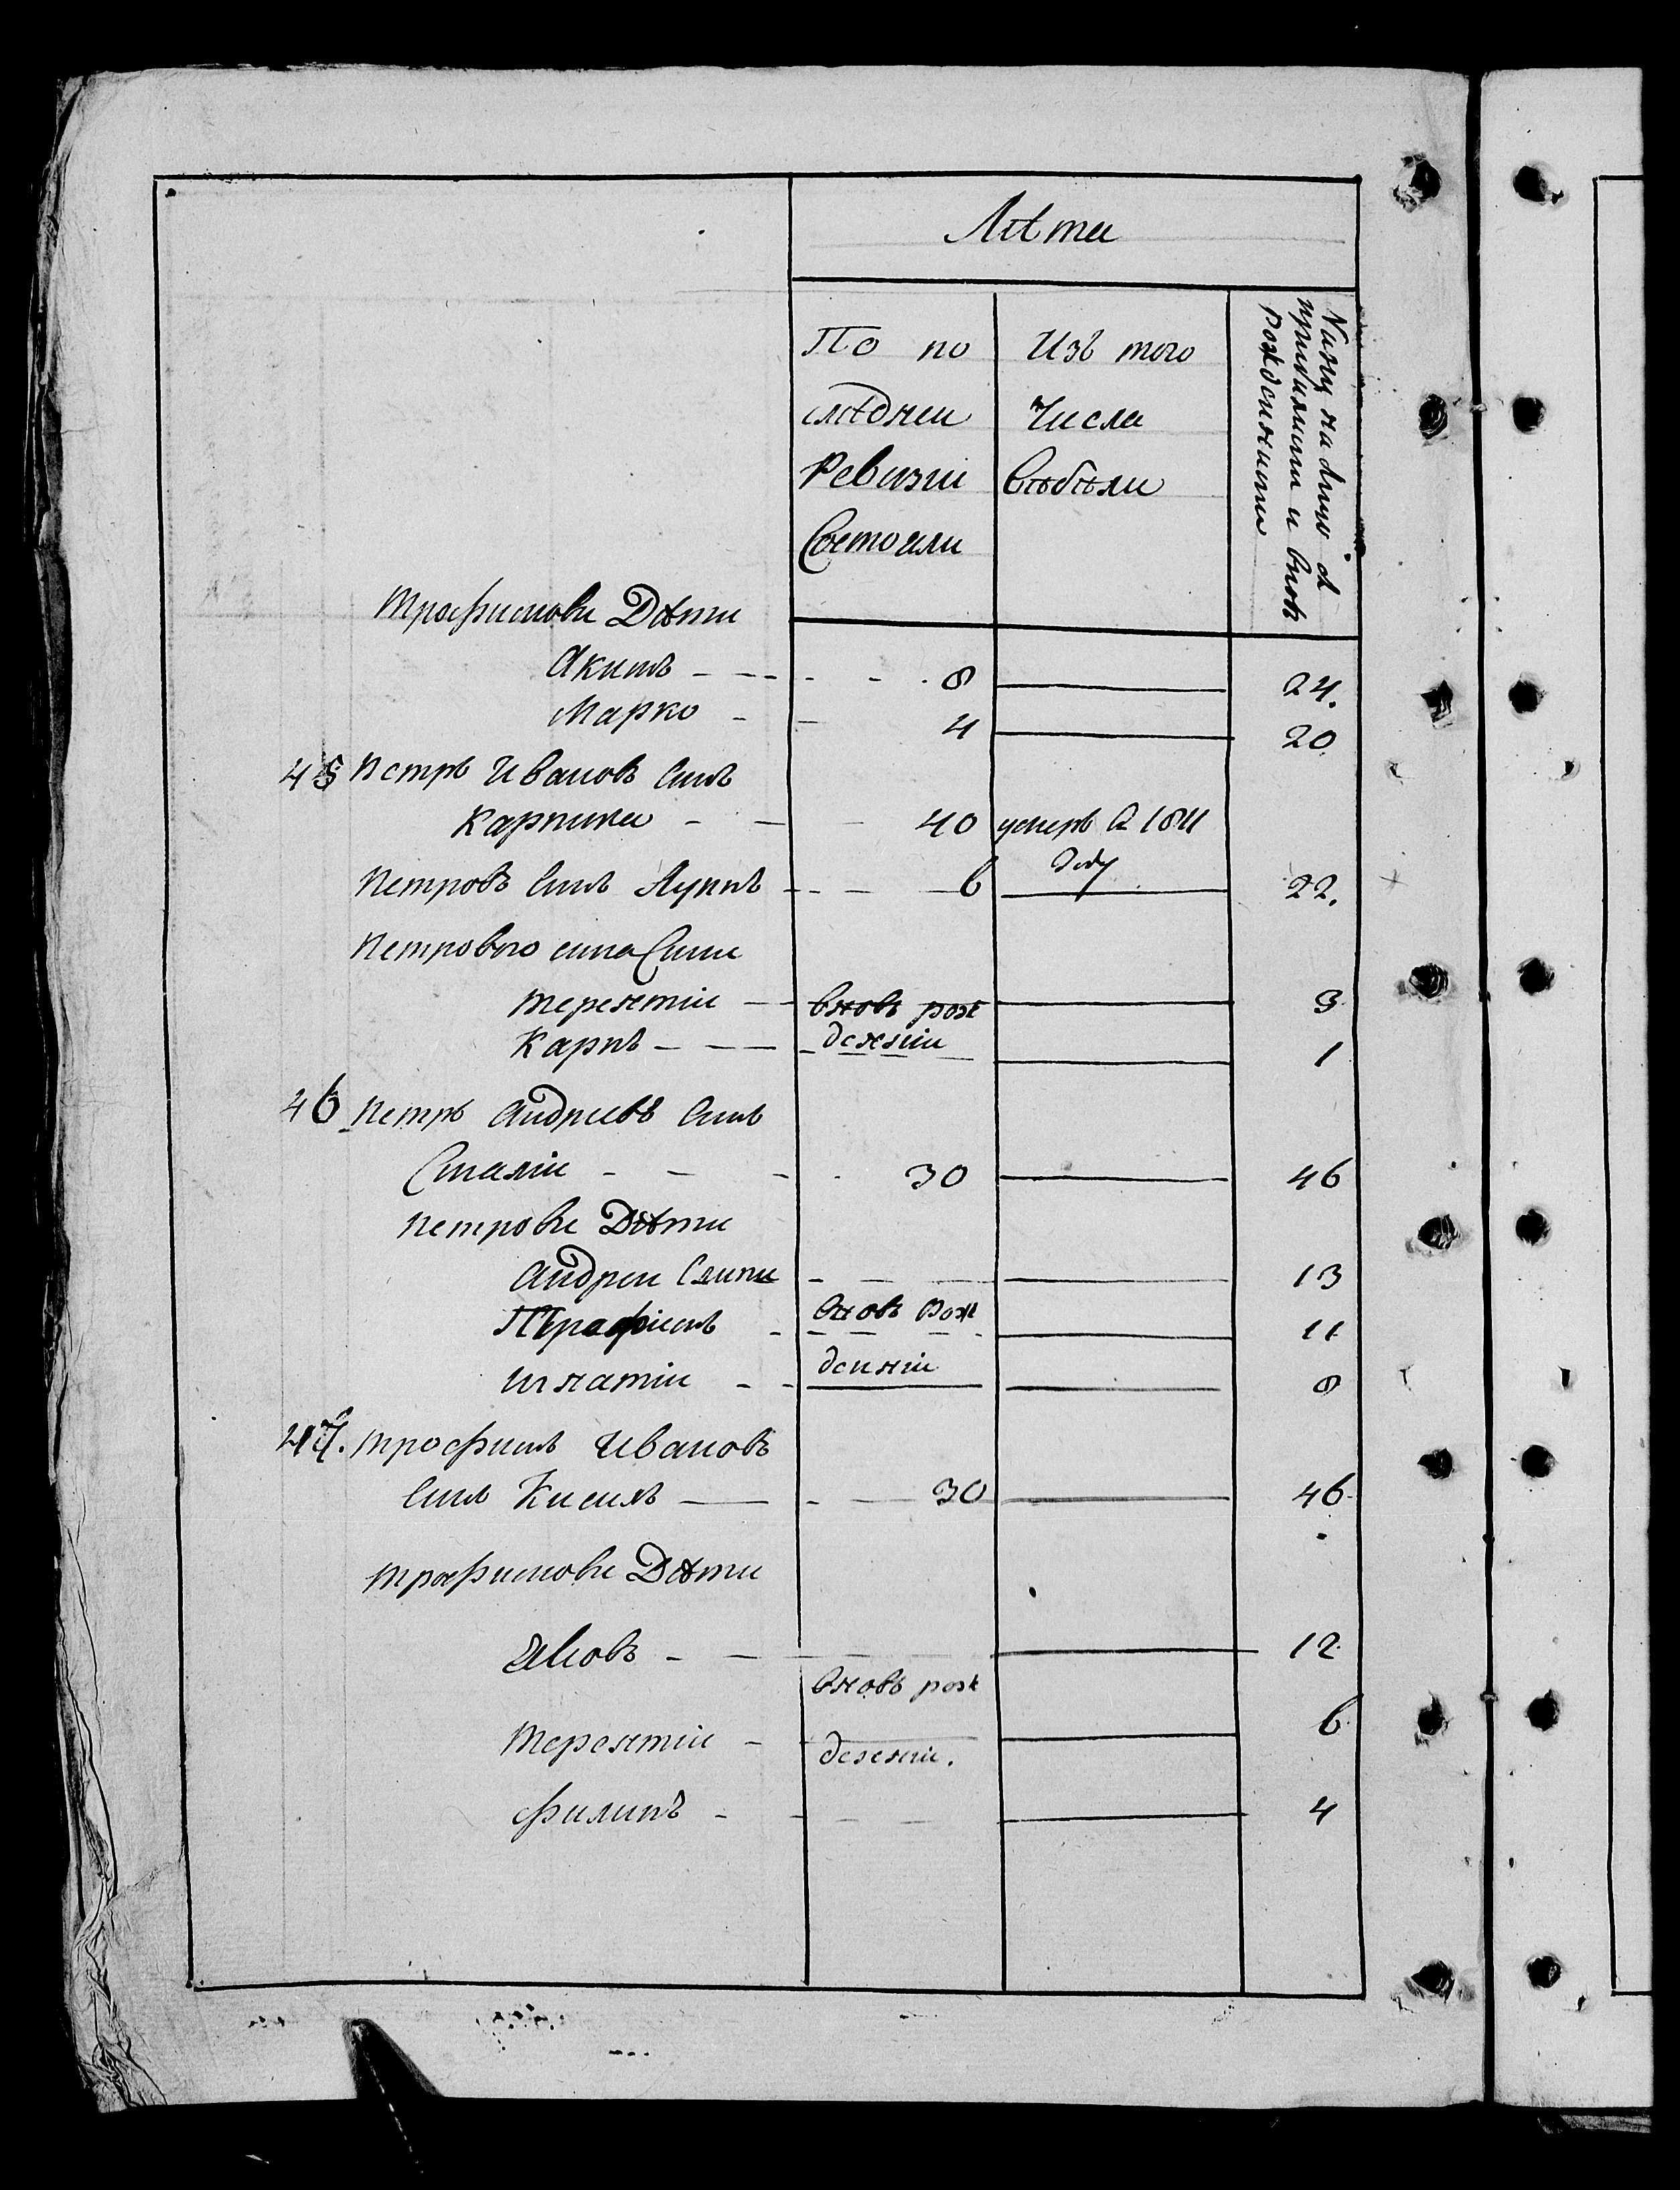 Лѣта
По по
слѣднеи
Ревизіи
Состояли
Изъ того
Числа
выбыли
Нынѣ на лицо съ
прибилими и вновь
рожденними
Трофимови Дѣти
Акимъ - - - - - 8 24.
Марко - - 4 20
45 Петръ Ивановъ Синъ
Карпина - - - 40 умеръ в 1811
году
Петровъ Синъ Луппъ - - - 6 22.
Петрового сина Сини
Терентіи - вновь рож 3
Карпъ - - - деніи 1
46 Петръ Андреевъ Синъ
30 46
Петрови Дѣти
Андреи 13
Трофимъ - вновь Рож 11
Игнатіи - - деніи 8
47. Трофимъ Ивановъ
Синъ Кисиль - - - 30 46
Трофимови Дѣти
Яковъ - - 12
вновь рож
Терентіи - 6
деніи.
Филипъ - - - - 4